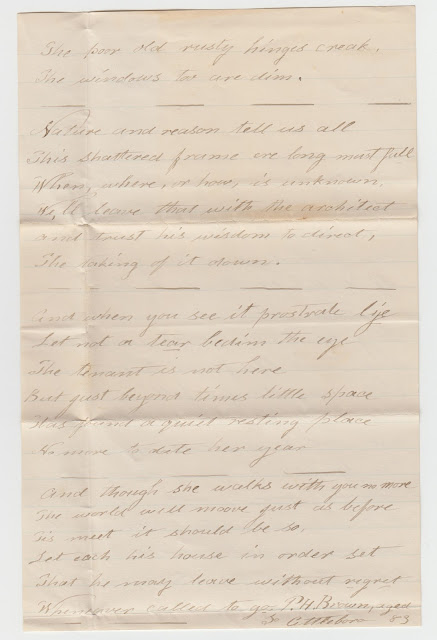 The poor old rusty hinges creak,
The windows too are dim.
Nature and reason tell us all
This shattered frame ere long must fall
When, where, or how, is unknown,
We,ll leave that with the architect
and trust his wisdom to direct,
The taking of it down.
And when you see it prostrate lye
Let not a tear bedim the eye
The tenant is not here
But just beyond times little space
Has found a quiet resting place
No more to date her year
And though she walks with you no more
The world will move just as before
Tis meet it should be so,
Let each his house in order set
That he may leave without regret
Whenever called to go. P. H. Brown, aged
83